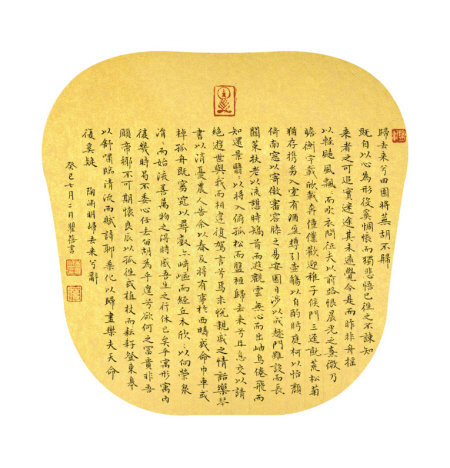 歸去來兮田園將蕪胡不歸
既自以心為形役奚惆悵而獨悲悟已往之不諫知
來者之可追實迷途其未遠覺今是而昨非舟搖
以輕颺風飄飄而吹衣問征夫以前路恨晨光之熹微乃
瞻衡宇載欣載奔僮僕歡迎稚子候門三逕就荒松菊
猶存攜幼入室有酒盈樽引壺觴以自酌眄庭柯以怡顏
倚南窗以寄傲審容膝之易安園日涉以成趣門雖設而長
關策扶老以流憩時矯首而遐觀雲無心而出岫鳥倦飛而
知還景翳翳以將入撫孤松而盤桓歸去來兮請息交以
絕遊世與我而相違復駕言兮焉求悅親戚之情話樂琴
書以消憂農人告余以春及將有事於西疇或命巾車或
棹孤舟既窈窕以尋壑亦崎嶇而經丘木欣欣以向榮泉
涓涓而始流善萬物之得時感吾生之行休已矣乎寓形宇內
復幾時曷不委心任去留胡為乎遑遑兮欲何之富貴非吾
願帝鄉不可期懷良辰以孤往或植杖而耘耔登東皋
以舒嘯臨清流而賦詩聊乘化以歸盡樂夫天命
復奚疑 陶淵明歸去來兮辭
癸巳七月二日 書